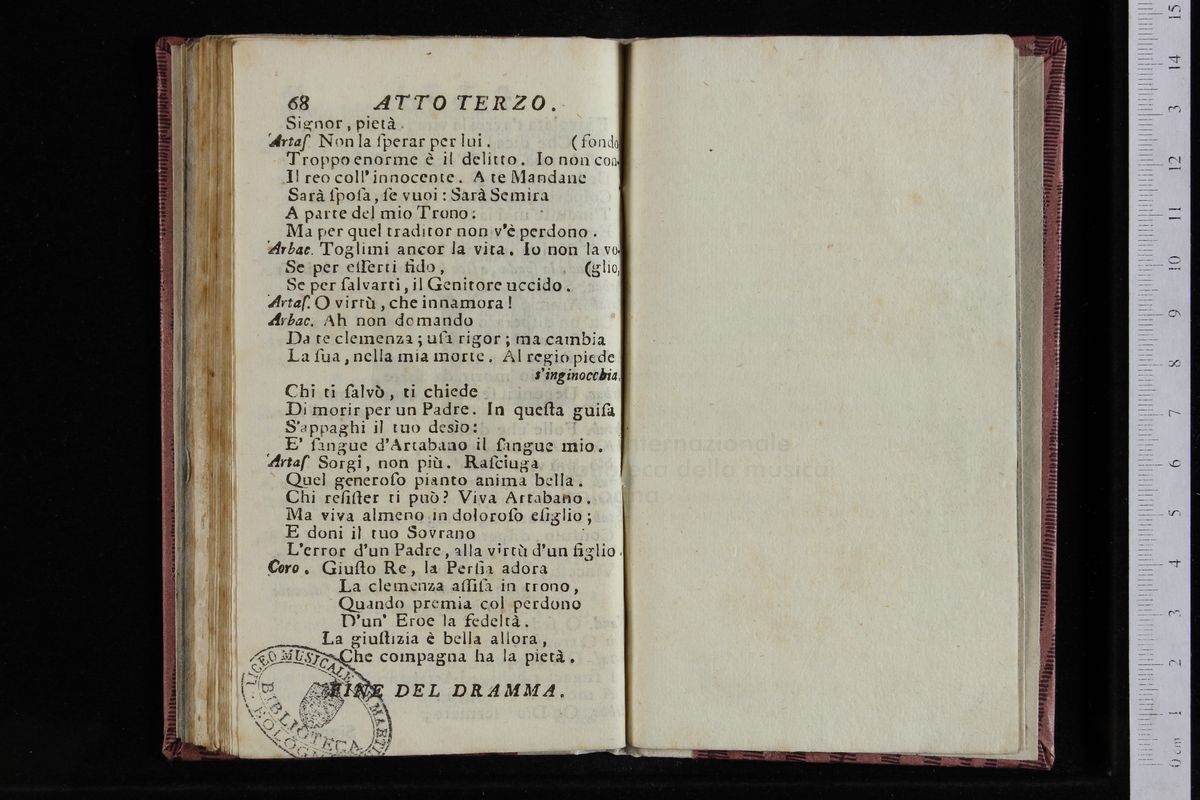 68 ATTO TERZO.
Signor, pietà.
Artaſ. Non la ſperar per lui. (fondo
Troppo enorme è il delitto. Io non con-
Il reo coll' innocente. A te Mandane
Sarà ſpoſa, ſe vuoi: Sarà Semira
A parte del mio Trono:
Ma per quel traditor non v'è perdono.
Arbac. Toglimi ancor la vita. Io non la vo-
Se per eſſerti fido, (glio,
Se per ſalvarti, il Genitore uccido.
Artaſ. O virtù, che innamora!
Arbac. Ah non domando
Da te clemenza; uſa rigor; ma cambia
La ſua, nella mia morte. Al regio piede
s'inginocchia.
Chi ti ſalvò, ti chiede
Di morir per un Padre. In queſta guiſa
S'appaghi il tuo desìo:
E' ſangue d'Artabano il ſangue mio.
Artaſ Sorgi, non più. Raſciuga
Quel generoſo pianto anima bella.
Chi reſiſter ti può? Viva Artabano.
Ma viva almeno in doloroſo eſiglio;
E doni il tuo Sovrano
L'error d'un Padre, alla virtù d'un figlio.
Coro. Giuſto Re, la Perſia adora
La clemenza aſſiſa in trono,
Quando premia col perdono
D'un' Eroe la fedeltà.
La giuſtizia è bella allora,
Che compagna ha la pietà.
FINE DEL DRAMMA.
LICEO MUSICALE MARTI
BIBLIOTECA
BOLOGNA
internazionale
della musica
0 cm 1 2 3 4 5 6 7 8 9 10 11 12 3 14 15